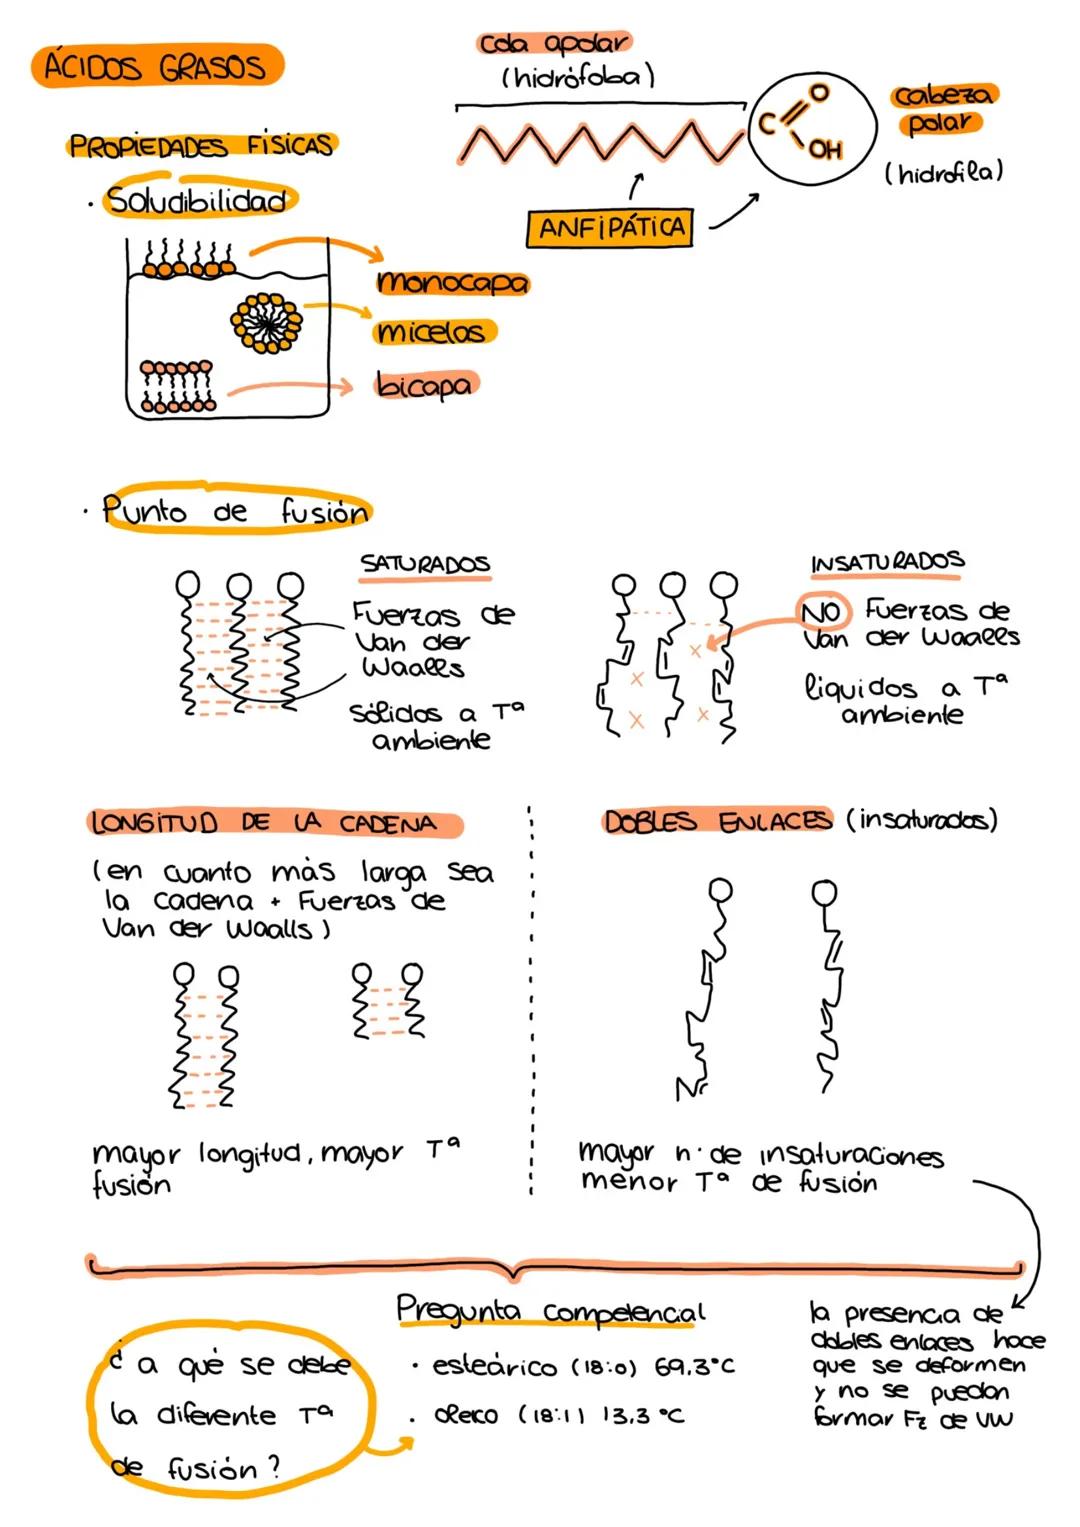 ÁCIDOS GRASOS
Cola apolar
(hidrófoba)
C
O
OH
cabeza
polar
(hidrofila)
ANFIPÁTICA
PROPIEDADES FÍSICAS
· Soludibilidad
monocapa
micelas
bicapa
· Punto de fusión
SATURADOS
Fuerzas de
Van der
Waalls
Sólidos a Tª
ambiente
INSATURADOS
NO Fuerzas de
Van der Waalls
líquidos a Tª
ambiente
LONGITUD DE LA CADENA
(en cuanto más larga sea
la cadena + Fuerzas de
Van der Waalls)
mayor longitud, mayor Tª
fusión
DOBLES ENLACES (insaturados)
mayor n· de insaturaciones
menor Tª de fusión
la presencia de
dobles enlaces hace
que se deformen
y no se puedan
formar Fz de VW
Pregunta competencial
¿a qué se debe
la diferente Tª
de fusión?
· esteárico (18:0) 69,3°C
· oleico (18:1) 13,3 °C